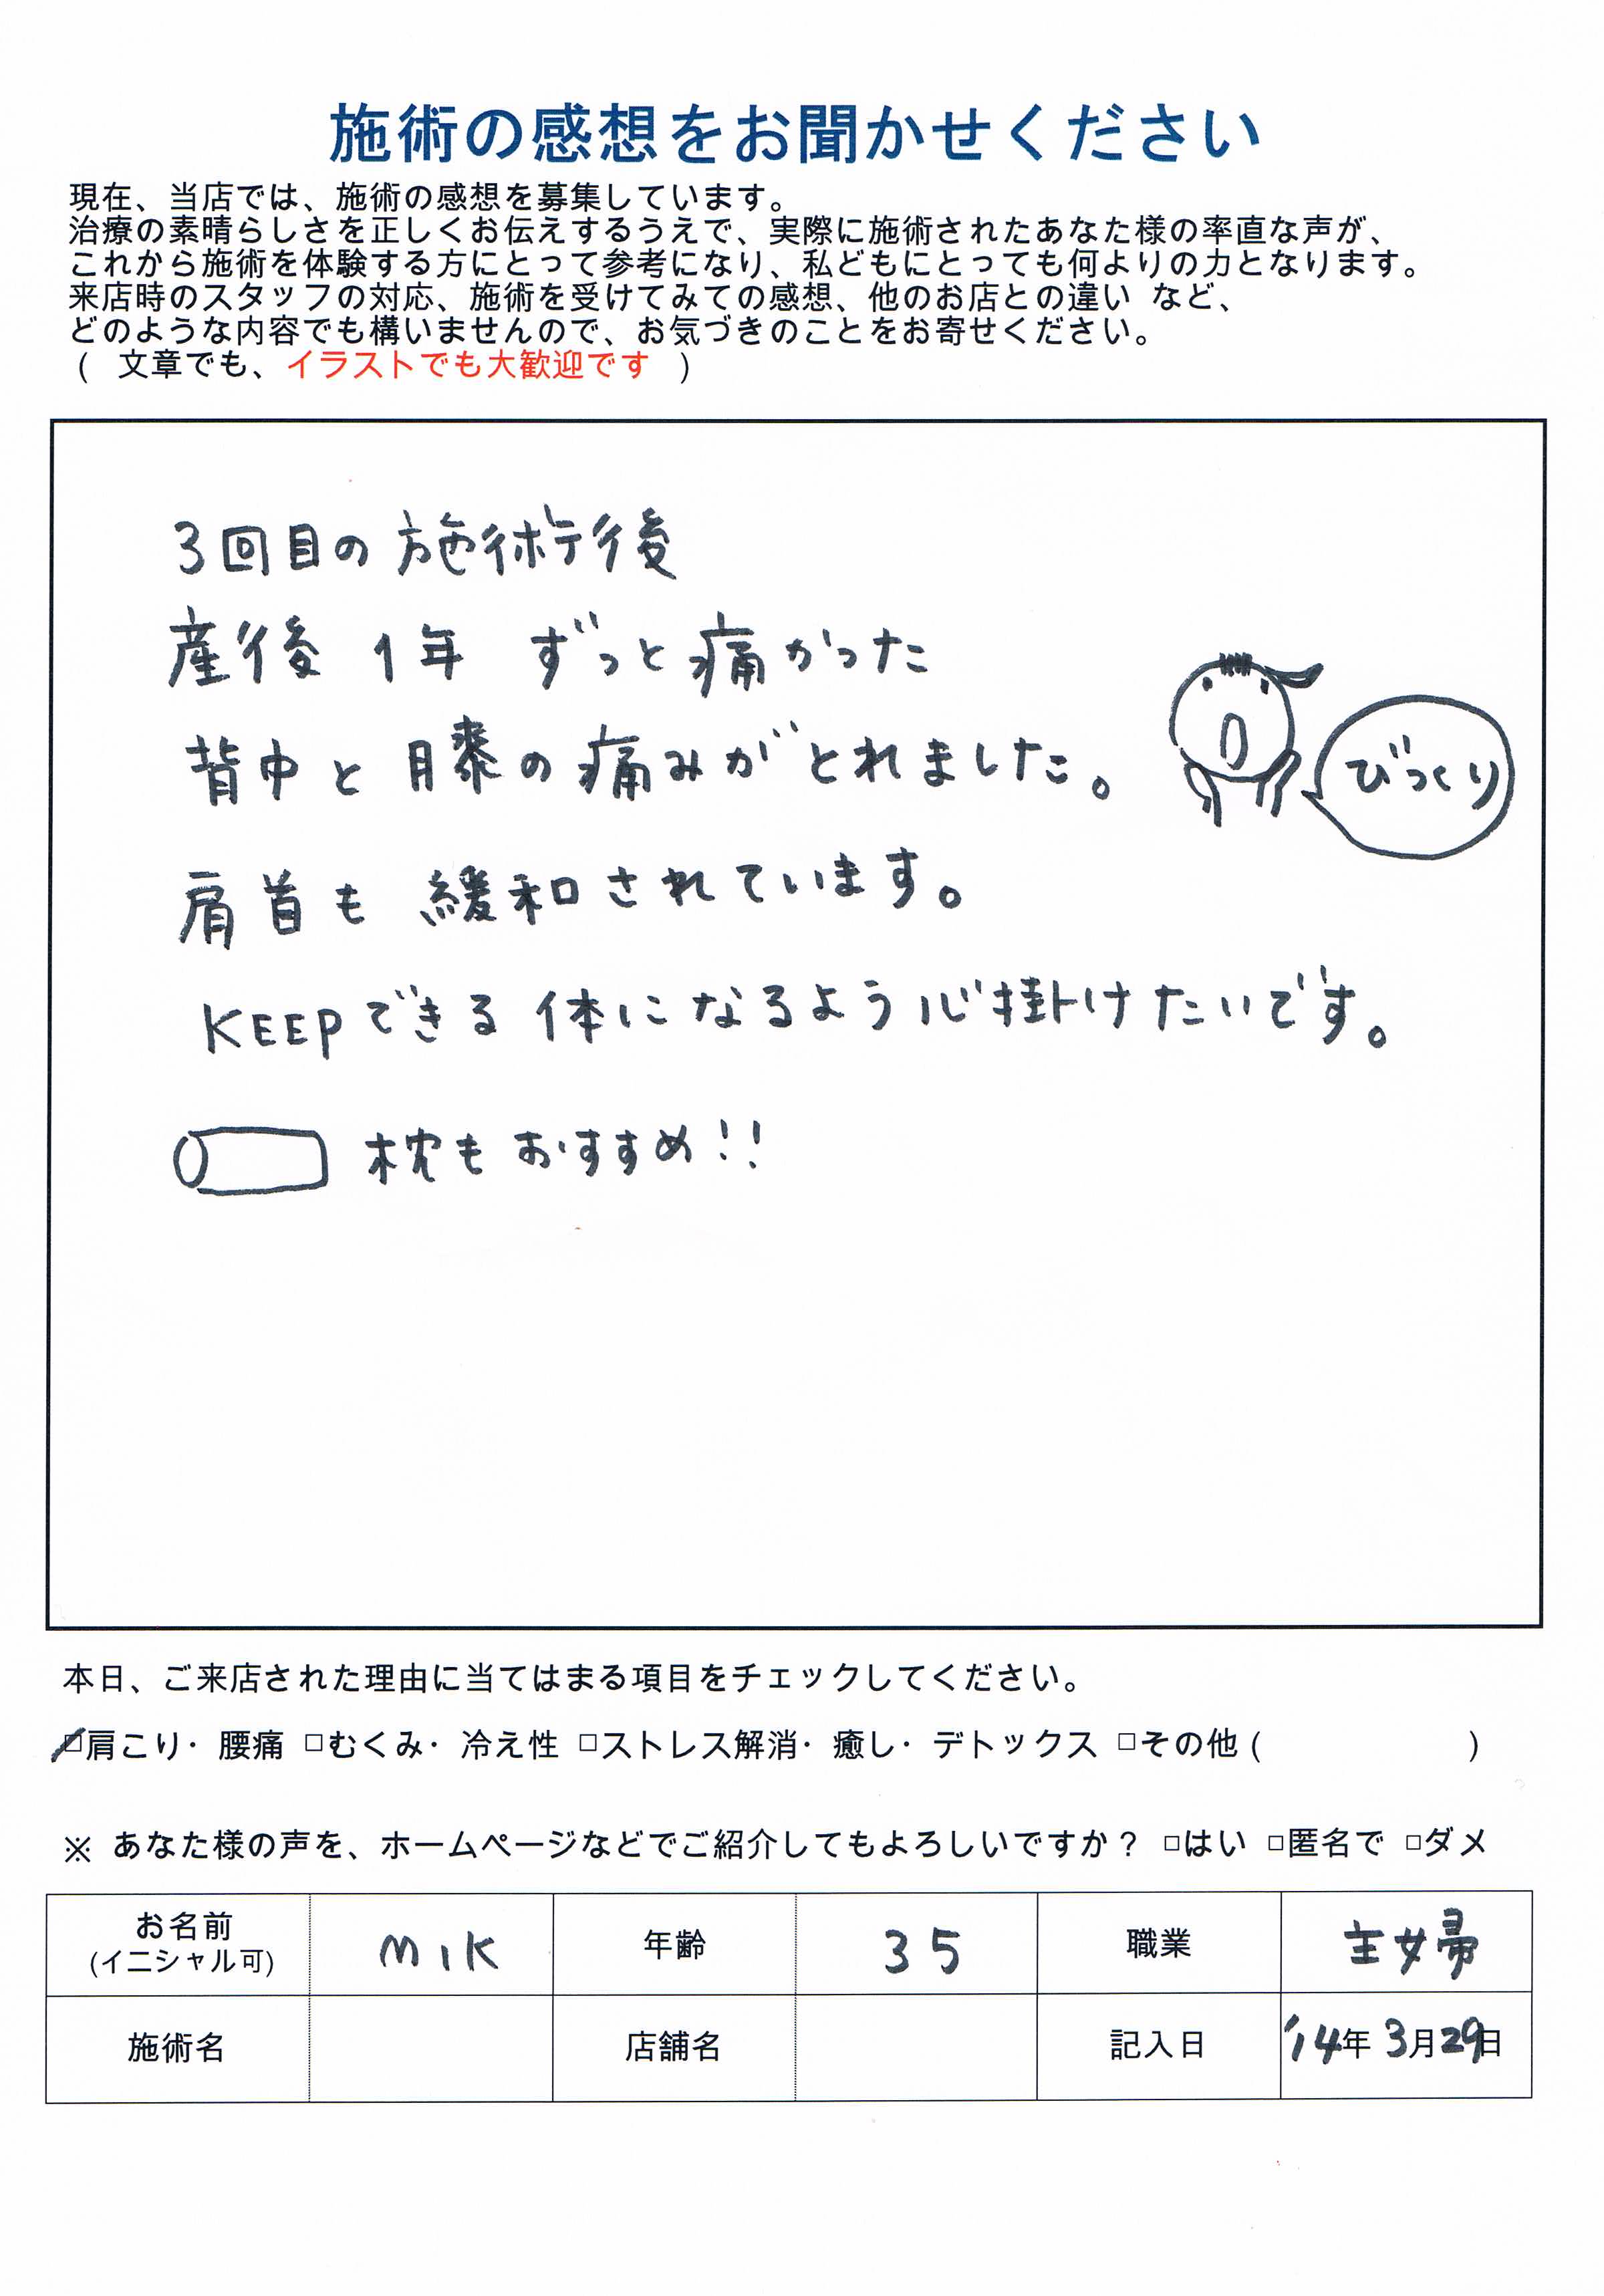 施術の感想をお聞かせください
現在、当店では、施術の感想を募集しています。
治療の素晴らしさを正しくお伝えするうえで、実際に施術されたあなた様の率直な声が、
これから施術を体験する方にとって参考になり、私どもにとっても何よりの力となります。
来店時のスタッフの対応、施術を受けてみての感想、他のお店との違い など、
どのような内容でも構いませんので、お気づきのことをお寄せください。
( 文章でも、イラストでも大歓迎です )
3回目の施術後
産後 1年 ずっと痛かった
背中と膝の痛みがとれました。
びっくり
肩首も 緩和されています。
KEEPできる体になるよう心掛けたいです。
枕もおすすめ!!
本日、ご来店された理由に当てはまる項目をチェックしてください。
☑肩こり・腰痛 □むくみ・冷え性 □ストレス解消・癒し・デトックス □その他 ( )
※ あなた様の声を、ホームページなどでご紹介してもよろしいですか? □はい □匿名で □ダメ
お名前 MIK 年齢 35 職業 主婦
(イニシャル可)
施術名 店舗名 記入日 '14年 3月29日